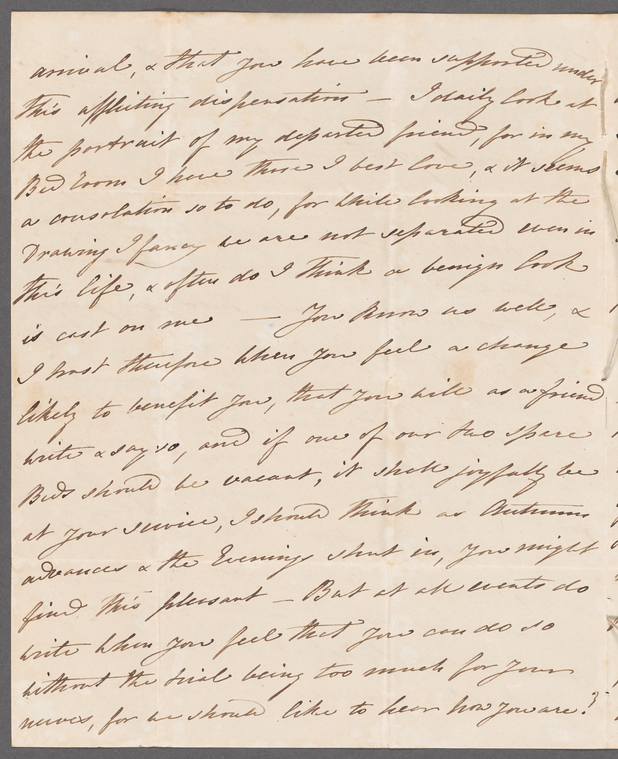 arrival, & that you have been supported under
this afflicting dispensation — I daily look at
the portrait of my departed friend, for in my
Bed room I have those I best love, & it seems
a consolation so to do, for while looking at the
Drawing I fancy we are not separated even in
this life, & often do I think a benign look
is cast on me — You know us well, &
I trust therefore when you feel a change
likely to benefit you, that you will as a friend
write & say so, and if one of our two spare
Beds should be vacant, it shall joyfully be
at your service, I should think as Autumn
advances & the Evenings shut in, you might
find this pleasant — But at all events do
write when you feel that you can do so
without the trial being too much for your
nerves, for we should like to hear how you are?